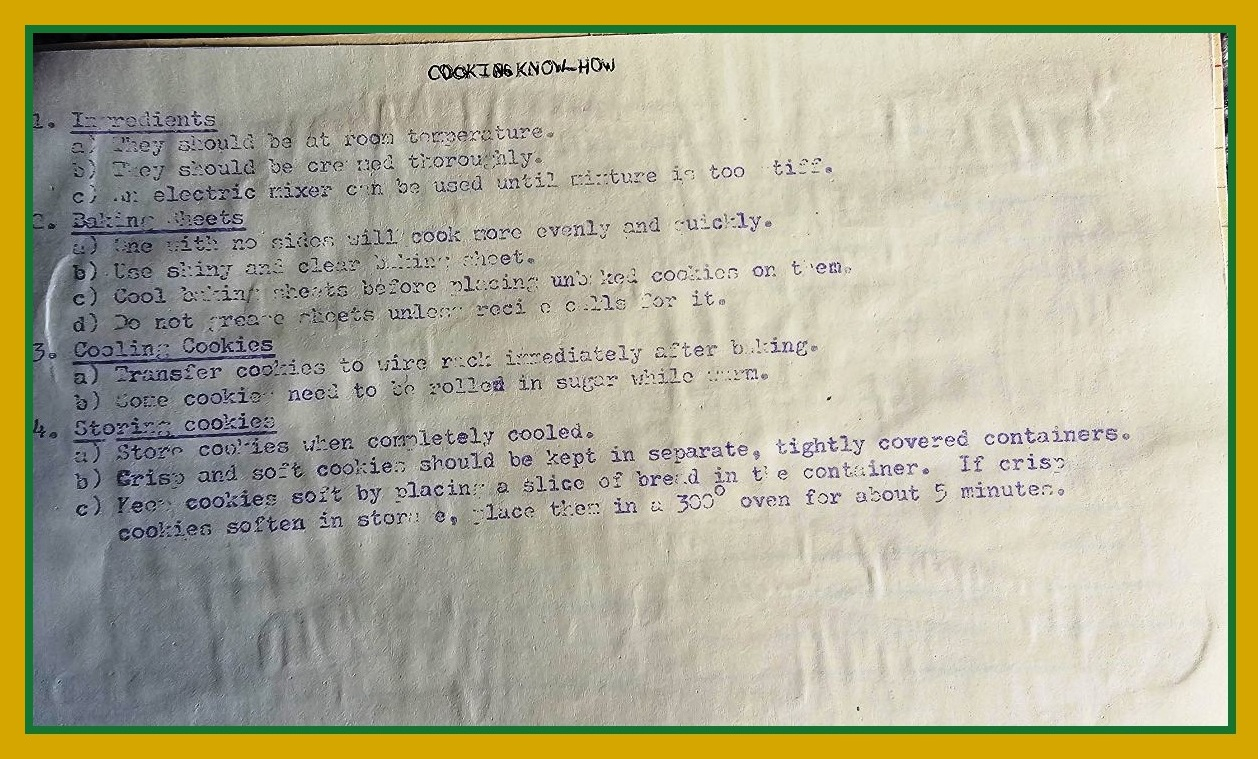 COOKING KNOW-HOW
1. Ingredients
a) They should be at room temperature.
b) They should be creamed thoroughly.
c) An electric mixer can be used until mixture is too stiff.
2. Baking Sheets
a) One with no sides will cook more evenly and quickly.
b) Use shiny and clear baking sheet.
c) Cool baking sheets before placing unbaked cookies on them.
d) Do not grease sheets unless recipe calls for it.
3. Cooling Cookies
a) Transfer cookies to wire rack immediately after baking.
b) Some cookies need to be rolled in sugar while warm.
4. Storing cookies
a) Store cookies when completely cooled.
b) Crisp and soft cookies should be kept in separate, tightly covered containers.
c) Keep cookies soft by placing a slice of bread in the container. If crisp
cookies soften in storage, place them in a 300° oven for about 5 minutes.